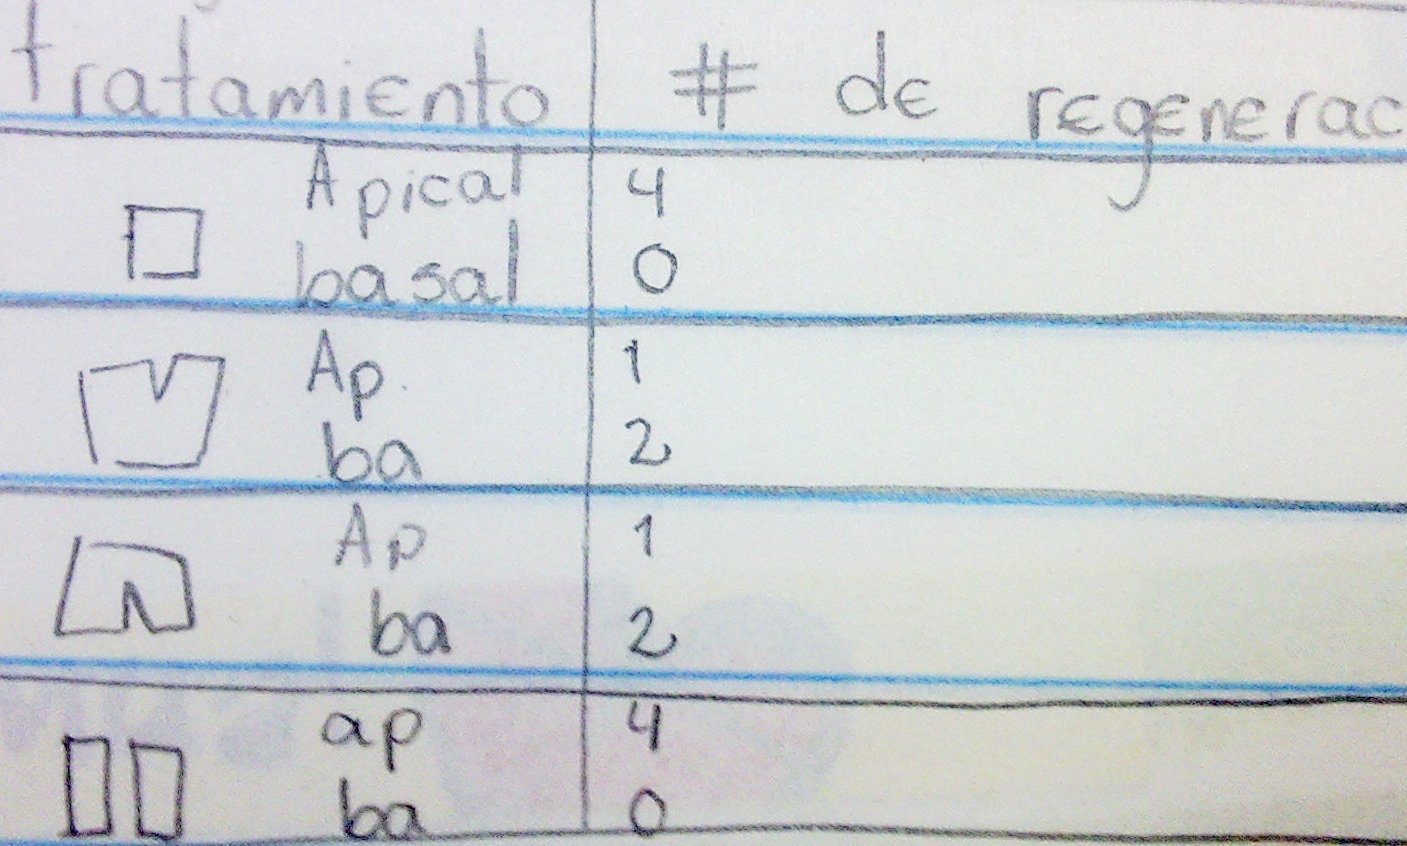 tratamiento # de regenerac
Apical 4
basal 0
Ap. 1
ba 2
Ap 1
ba 2
ap 4
ba 0